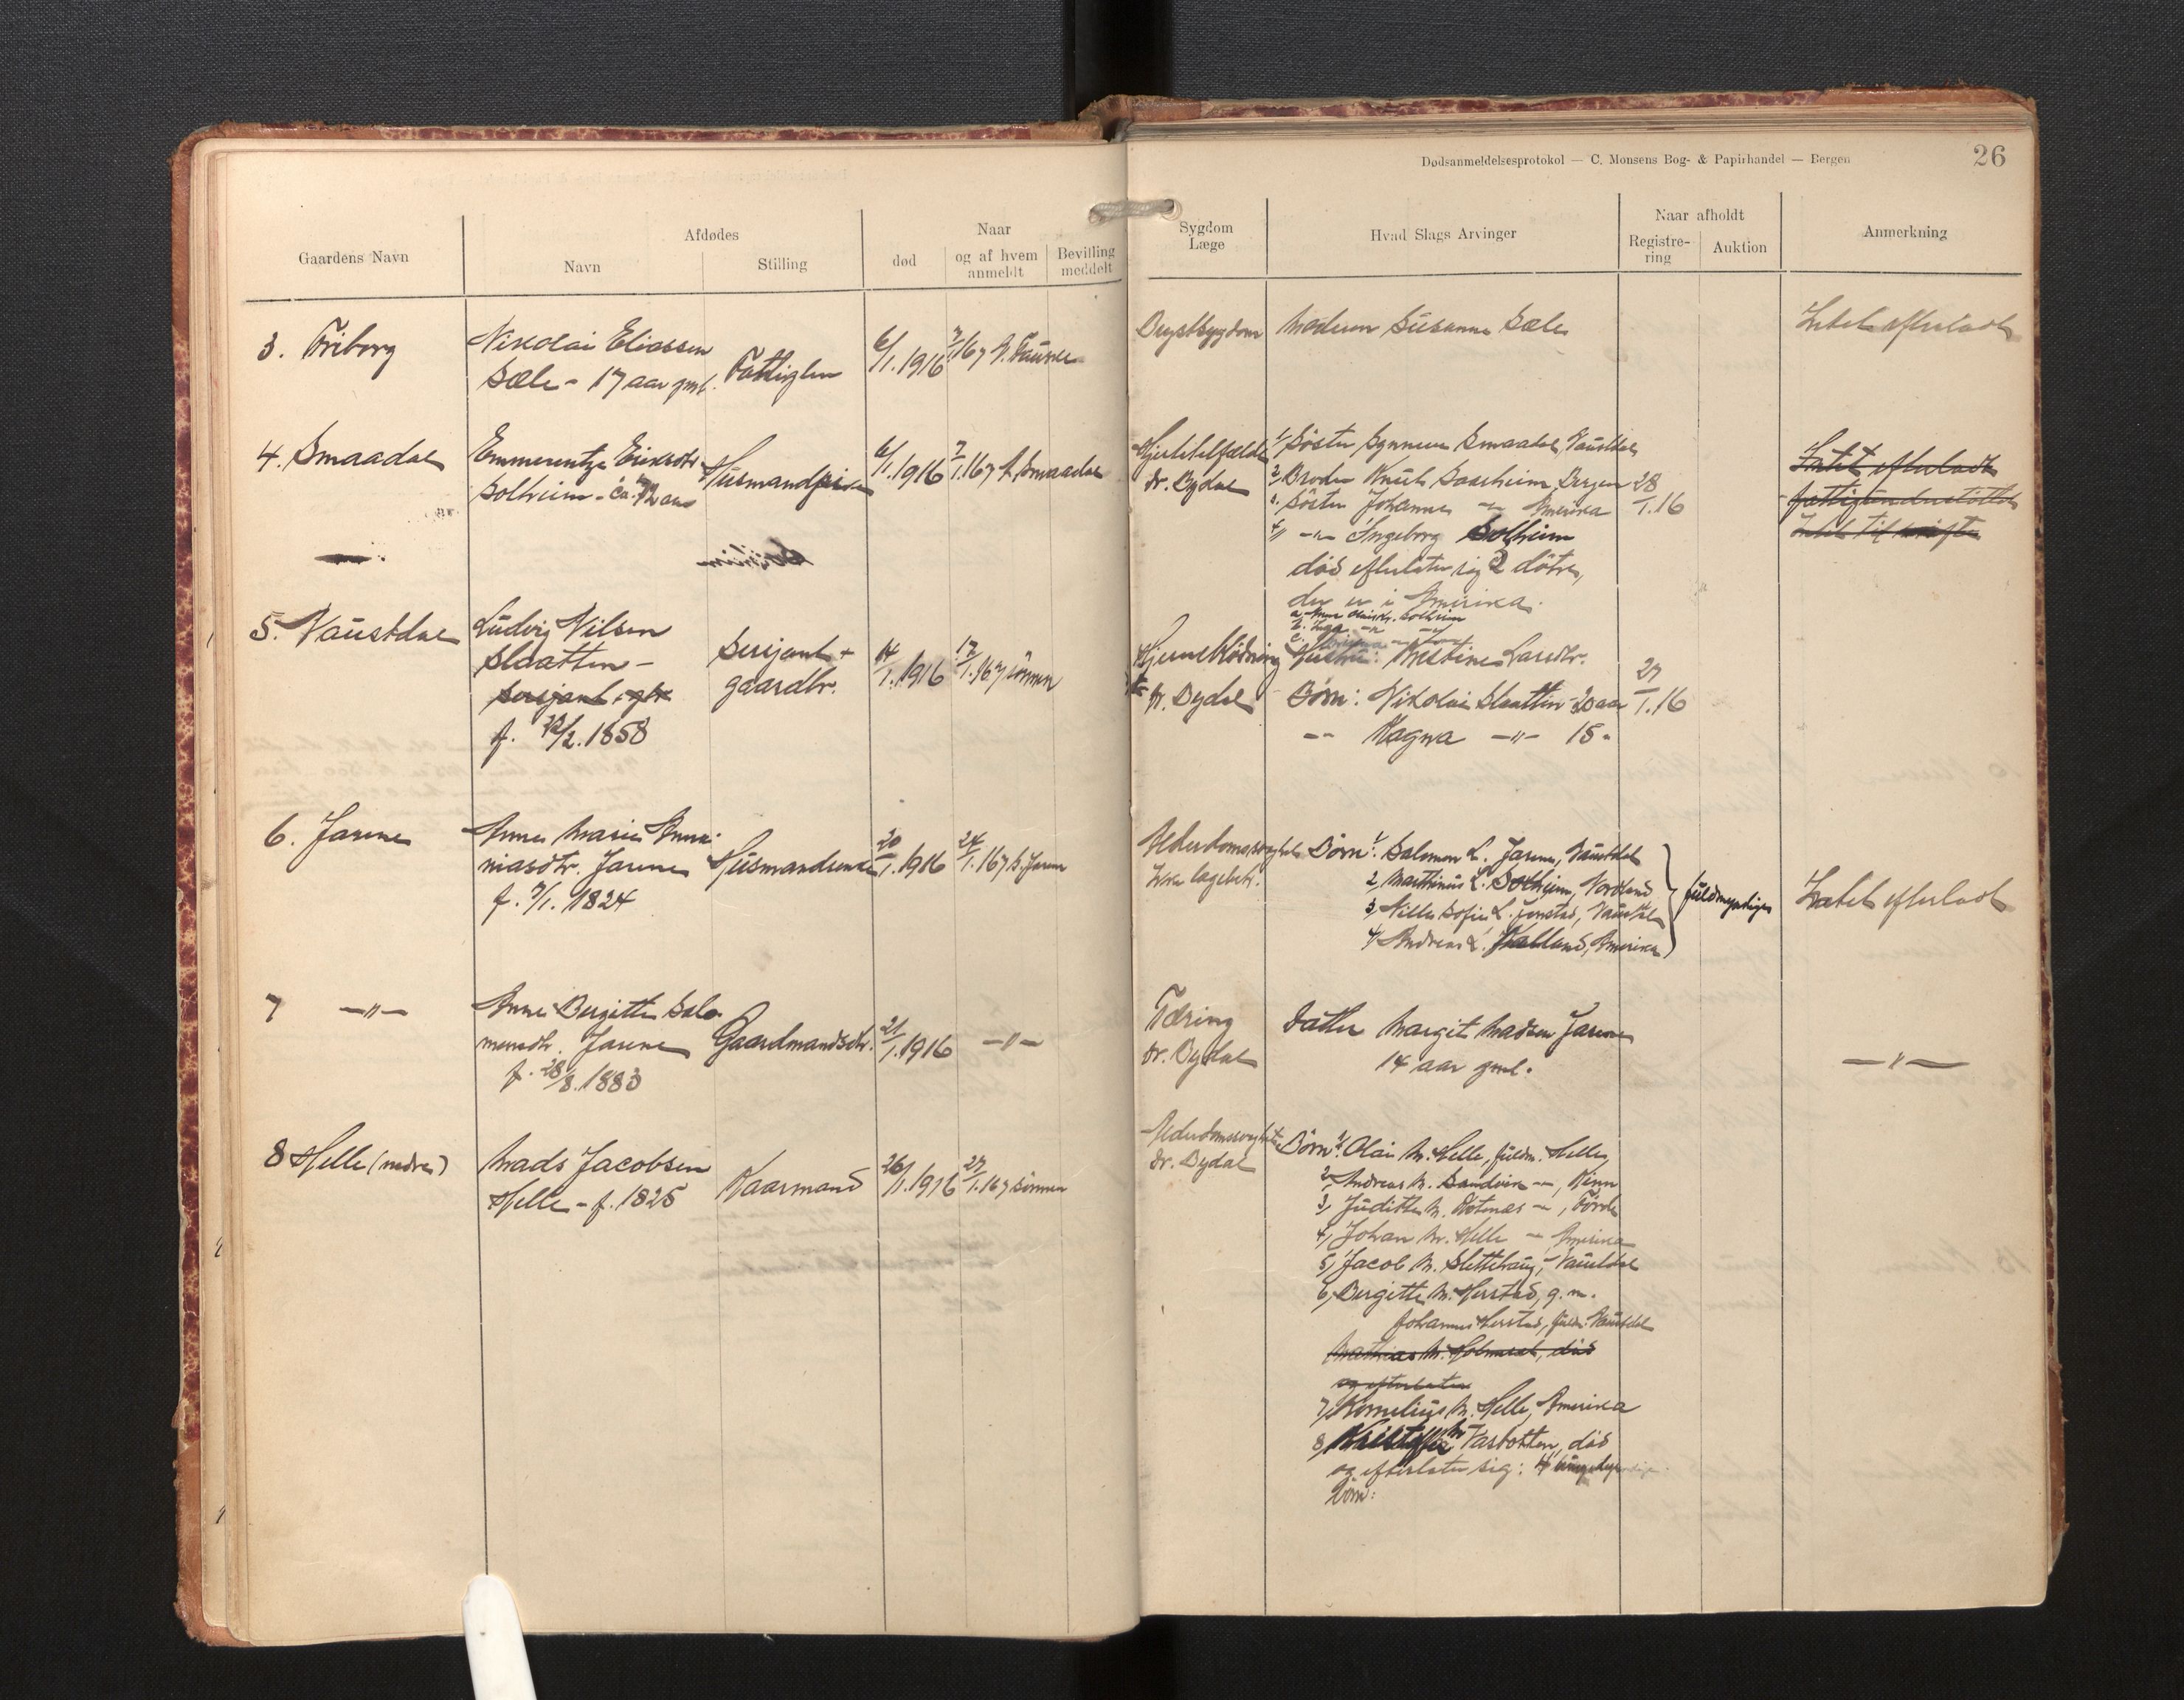 Dødsanmeldelsesprotokol — C. Monsens Bog- & Papirhandel — Bergen
26
Gaardens Navn
Afdødes
Navn
Stilling
Naar
død
og af hvem anmeldt
Bevilling meddelt
Sygdom
Læge
Hvad Slags Arvinger
Naar afholdt
Registre-
ring
Auktion
Anmerkning
3. Friborg
Nikolai Eliassen
Sæle - 17 aar gml.
Fattiglem
6/1.1916
7/1.16
Brystsygdom
Moderen Susanne Sæle
Intet efterladt
4. Smaadal
Emmerentze Eriksdtr.
Solheim - ca. 72 aar
6/1.1916
7/1.16 Smaadal
Hjertetilfælde
dr. Dydal
1/ Søster Synneve Smaadal, Naustdal
2, Broder Knut Bergen
3. Søster Johanne -"- Amerika
4/, -"- Ingeborg Solheim
død efterlater sig 2 døtre,
der er i Amerika.
28/1.16
Intet efterladt
5. Naustdal
Ludvig Nilsen
Slaatten -
sersjant
f. 1858
Sersjant +
gaardbr.
14/1.1916
17/1.16 sønnen
Hjerneblødning
dr. Dydal
Hustru: Larsdtr.
Børn: Nikolai Slaatten 20 aar
-"- Magna -"- 15 "
27/1.16
6. Jarene
Anne Marie
niasdtr. Jarene
f. 1824
Husmandsenke
20/1.1916
24/1.16 S. Jarene
Alderdomssvaghet
Børn: 1/ Salomon L. Jarene, Naustdal
2, Marthinus L. Solheim, Nordland
3, Nille Sofie L. Naustdal
4/ Andreas L. Kalland, Amerika
fuldmyndige
Intet efterladt
7 -"-
Anne Bergitte Salo-
monsdtr. Jarene
f. 28/8.1883
Gaardmandsdtr.
21/1.1916
-"-
Tæring
dr. Dydal
Datter Margit Madsen Jarene
14 aar gml.
-"-
8 Helle (nedre)
Mads Jacobsen
Helle - f. 1825
Kaarmand
26/1.1916
27/1.16 sønnen
Alderdomssvaghet
dr. Dydal
Børn: 1/ Olai M. Helle, fuldm. Helle,
2, Andreas M. Sandvik -"-, Kinn
3, Juditte M. -"-, Førde
4, Johan M. Helle -"- Amerika
5, Jacob M. Slettehaug, - Naustdal
6, Bergitte M. Herstad, g. m.
Johannes Herstad, fuldm. Naustdal
Mathias M. død
og efterlater
7, Kornelius M. Helle, Amerika
8, M. død
og efterlater sig: 4
børn: